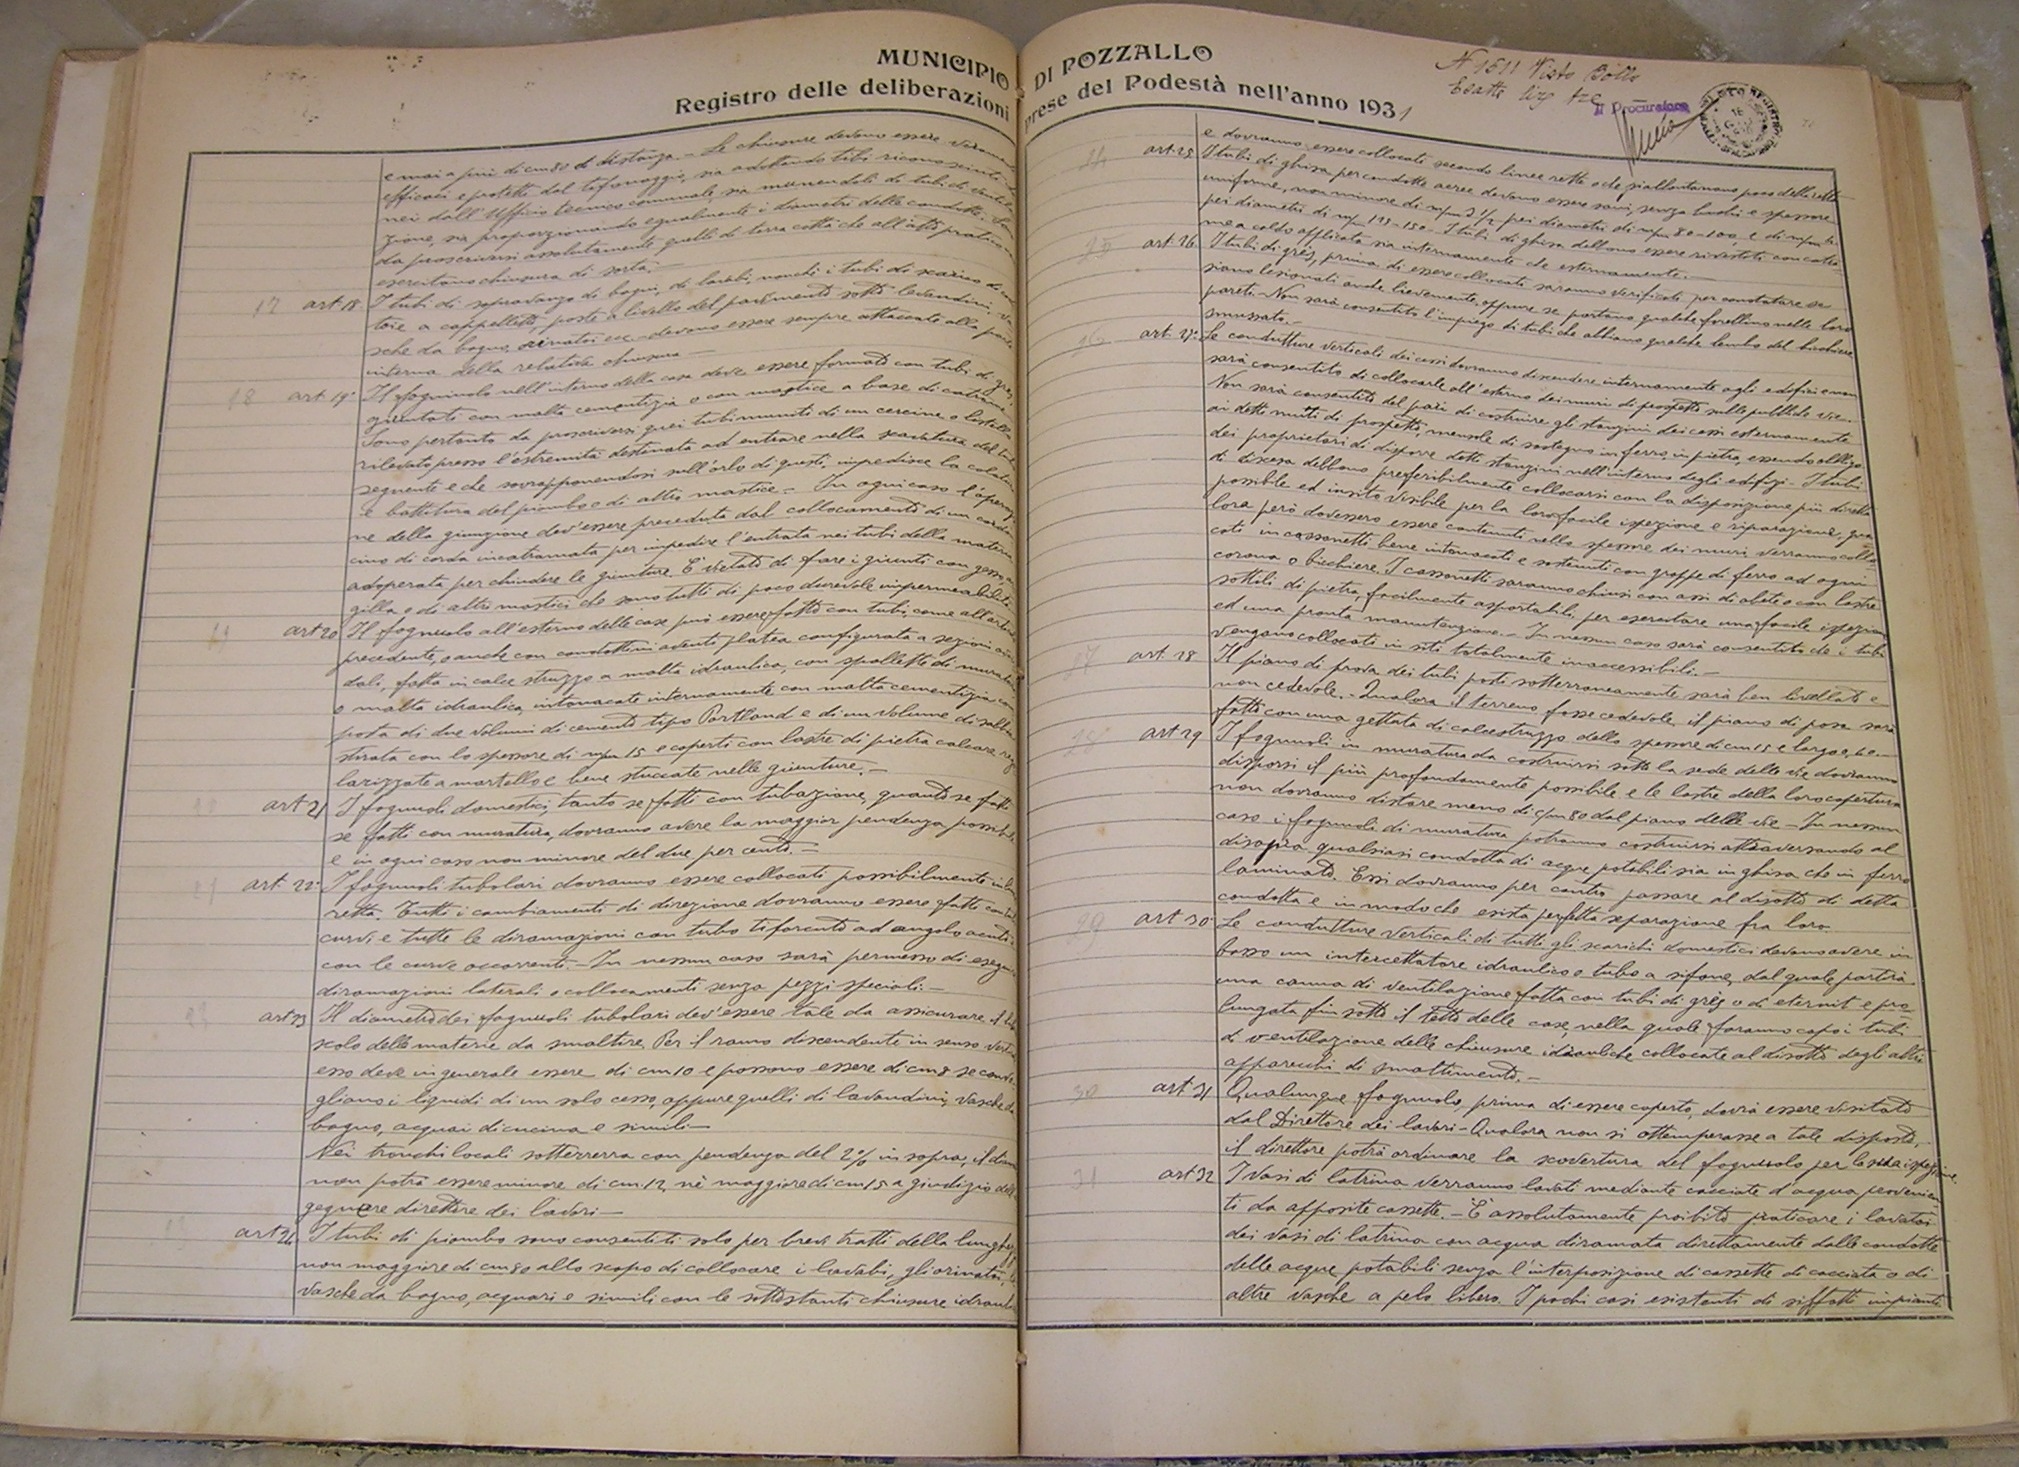 MUNICIPIO DI POZZALLO
Registro delle deliberazioni prese del Podestà nell'anno 1931
N 1511 Visto Bollo
Esatte
Il Procuratore
e mai a più di cm 80 di distanza. - Le chiusure devono essere
efficaci e protette dal sifonaggio, sia adottando tubi riconosciuti
nei dall'Ufficio tecnico comunale, sia munendoli di tubi di
zione, sia proporzionando egualmente i diametri delle condotte.
da proscriversi assolutamente quelli di terra cotta che all'atto pratico non
esercitano chiusura di sorta. -
17 art. 18 I tubi di sopravanzo di bagni, di lavabi, nonchè i tubi di scarico
toie a cappelletto, poste a livello del pavimento sotto lavandini, va
sche da bagno, orinatoi ecc - devono essere sempre attaccate alla parte
interna della relativa chiusura -
18 art. 19° Il fognuolo nell'interno della casa deve essere formato con tubi di grès,
giuntati con malta cementizia o con mastice a base di catrame
Sono pertanto da proscriversi quei tubi muniti di un cercine o listello
rilevato presso l'estremità destinata ad entrare nella scavatura del tubo
seguente e che sovrapponendosi sull'orlo di questi, impedisce la colatura
e battitura del piombo o di altro mastice. - In ogni caso l'operazio
ne della giunzione dev'essere preceduta dal collocamento di un cordon
cino di corda incatramata per impedire l'entrata nei tubi della materia
adoperata per chiudere le giunture. E' vietato di fare i giunti con gesso, ar
gilla o di altri mastici che sono tutti di poco durevole impermeabilità.
19 art 20 Il fognuolo all'esterno delle case può essere fatto con tubi, come all'articolo
precedente, o anche con condottini avente platea configurata a sezioni
dali, fatta in calcestruzzo a malta idraulica, con spallette di muratura
o malta idraulica, intonacate internamente con malta cementizia com
posta di due volumi di cemento tipo Portland e di un volume di sabbia
stirata con lo spessore di m/m 15 e coperti con lastre di pietra calcare rego
larizzate a martello e bene stuccate nelle giunture. -
20 art 21 I fognuoli domestici, tanto se fatti con tubazione, quanto se fatti
se fatti con muratura, dovranno avere la maggior pendenza possibile
e in ogni caso non minore del due per cento. -
21 art. 22° I fognuoli tubolari dovranno essere collocati possibilmente in linea
retta. Tutti i cambiamenti di direzione dovranno essere fatti con tubi
curvi e tutte le diramazioni con tubo biforcuto ad angolo acuto e
con le curve occorrenti. - In nessun caso sarà permesso di eseguire
diramazioni laterali o collocamenti senza pezzi speciali. -
22 art 23 Il diametro dei fognuoli tubolari dev'essere tale da assicurare il
scolo delle materie da smaltire. Per il ramo discendente in senso verticale
esso deve in generale essere di cm 10 e possono essere di cm 8 se convo
gliano i liquidi di un solo cesso, oppure quelli di lavandini, vasche da
bagno, acquai di cucina e simili -
Nei tronchi locali sotterrerra con pendenza del 2% in sopra, il diametro
non potrà essere minore di cm. 12, nè maggiore di cm 15 a giudizio dell'in
gegnere direttore dei lavori -
23 art 24 I tubi di piombo sono consentiti solo per brevi tratti della lunghezza
non maggiore di cm 80 allo scopo di collocare i lavabi, gli orinatoi, le
vasche da bagno, acquari e simili con le sottostanti chiusure idrauliche
e dovranno essere collocati secondo linee rette o che si allontanano poco dalla retta
24 art. 25 I tubi di ghisa per condotte aeree devono essere sani, senza buchi e spessore
uniforme, non minore di m/m 2 1/2 pei diametri di m/m 80 - 100, e di m/m
pei diametri di m/m 125 - 150 - I tubi di ghisa debbono essere rivestiti con catra
me a caldo applicata sia internamente che esternamente. -
25 art. 26 I tubi di grès, prima di essere collocati saranno verificati per constatare se
siano lesionati anche lievemente, oppure se portano qualche forellino nelle loro
pareti - Non sarà consentito l'impiego di tubi che abbiano qualche lembo del bicchiere
smussato. -
26 art. 27° Le condutture verticali dei cessi dovranno discendere internamente agli edifici e non
sarà consentito di collocarle all'esterno dei muri di prospetto sulle pubbliche vie -
Non sarà consentito del pari di costruire gli stanzini dei cessi esternamente
ai detti muri di prospetto, mensole di sostegno in ferro, in pietra, essendo obbligo
dei proprietari di disporre detti stanzini nell'interno degli edifizi - I tubi
di discesa debbono preferibilmente collocarsi con la disposizione più diretta
possibile ed in sito visibile per la loro facile ispezione e riparazione, qua
lora però dovessero essere contenuti nello spessore dei muri, verranno collo
cati in cassonetti bene intonacati e sostenuti con grappe di ferro ad ogni
corona o bicchiere. I cassonetti saranno chiusi con assi di abete o con lastre
sottili di pietra, facilmente asportabili, per esercitare una facile ispezione
ed una pronta manutenzione. - In nessun caso sarà consentito che i tubi
vengano collocati in siti totalmente inaccessibili. -
27 art. 28 Il piano di prova dei tubi posti sotterraneamente sarà ben livellato e
non cedevole. - Qualora il terreno fosse cedevole il piano di posa sarà
fatto con una gettata di calcestruzzo dello spessore di cm 15 e largo
28 art 29 I fognuoli in muratura da costruirsi sotto la sede delle vie dovranno
disporsi il più profondamente possibile e le lastre della loro copertura
non dovranno distare meno di c/m 80 dal piano delle vie - In nessun
caso i fognuoli di muratura potranno costruirsi attraversando al
disopra qualsiasi condotta di acque potabili sia in ghisa che in ferro
laminato. Essi dovranno per contro passare al disotto di detta
condotta e in modo che esista perfetta separazione fra loro
29 art 30 Le condutture verticali di tutti gli scarichi domestici devono avere in
basso un intercettatore idraulico o tubo a sifone, dal quale partirà
una canna di ventilazione fatta con tubi di grès o di eternit e pro
lungata fin sotto il tetto delle case, nella quale faranno capo i tubi
di ventilazione delle chiusure idrauliche collocate al disotto degli altri
apparecchi di smaltimento. -
30 art 31 Qualunque fognuolo, prima di essere coperto, dovrà essere visitato
dal Direttore dei lavori - Qualora non si ottemperasse a tale disposto, -
il direttore potrà ordinare la scovertura del fognuolo per la sua ispezione.
31 art 32 I vasi di latrina verranno lavati mediante cacciate d'acqua provenien
ti da apposite cassette. - E' assolutamente proibito praticare i lavatoi
dei vasi di latrina con acqua diramata direttamente dalle condotte
delle acque potabili senza l'interposizione di cassette di cacciata o di
altre vasche a pelo libero. I pochi casi esistenti di siffatti impianti